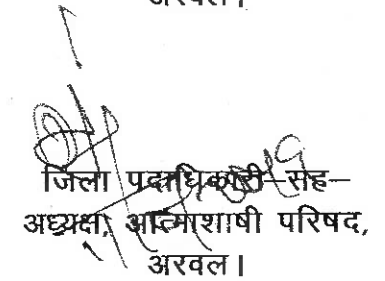 अरवल।
जिला पदाधिकारी–सह–
अध्यक्ष, आत्माशाषी परिषद,
अरवल।